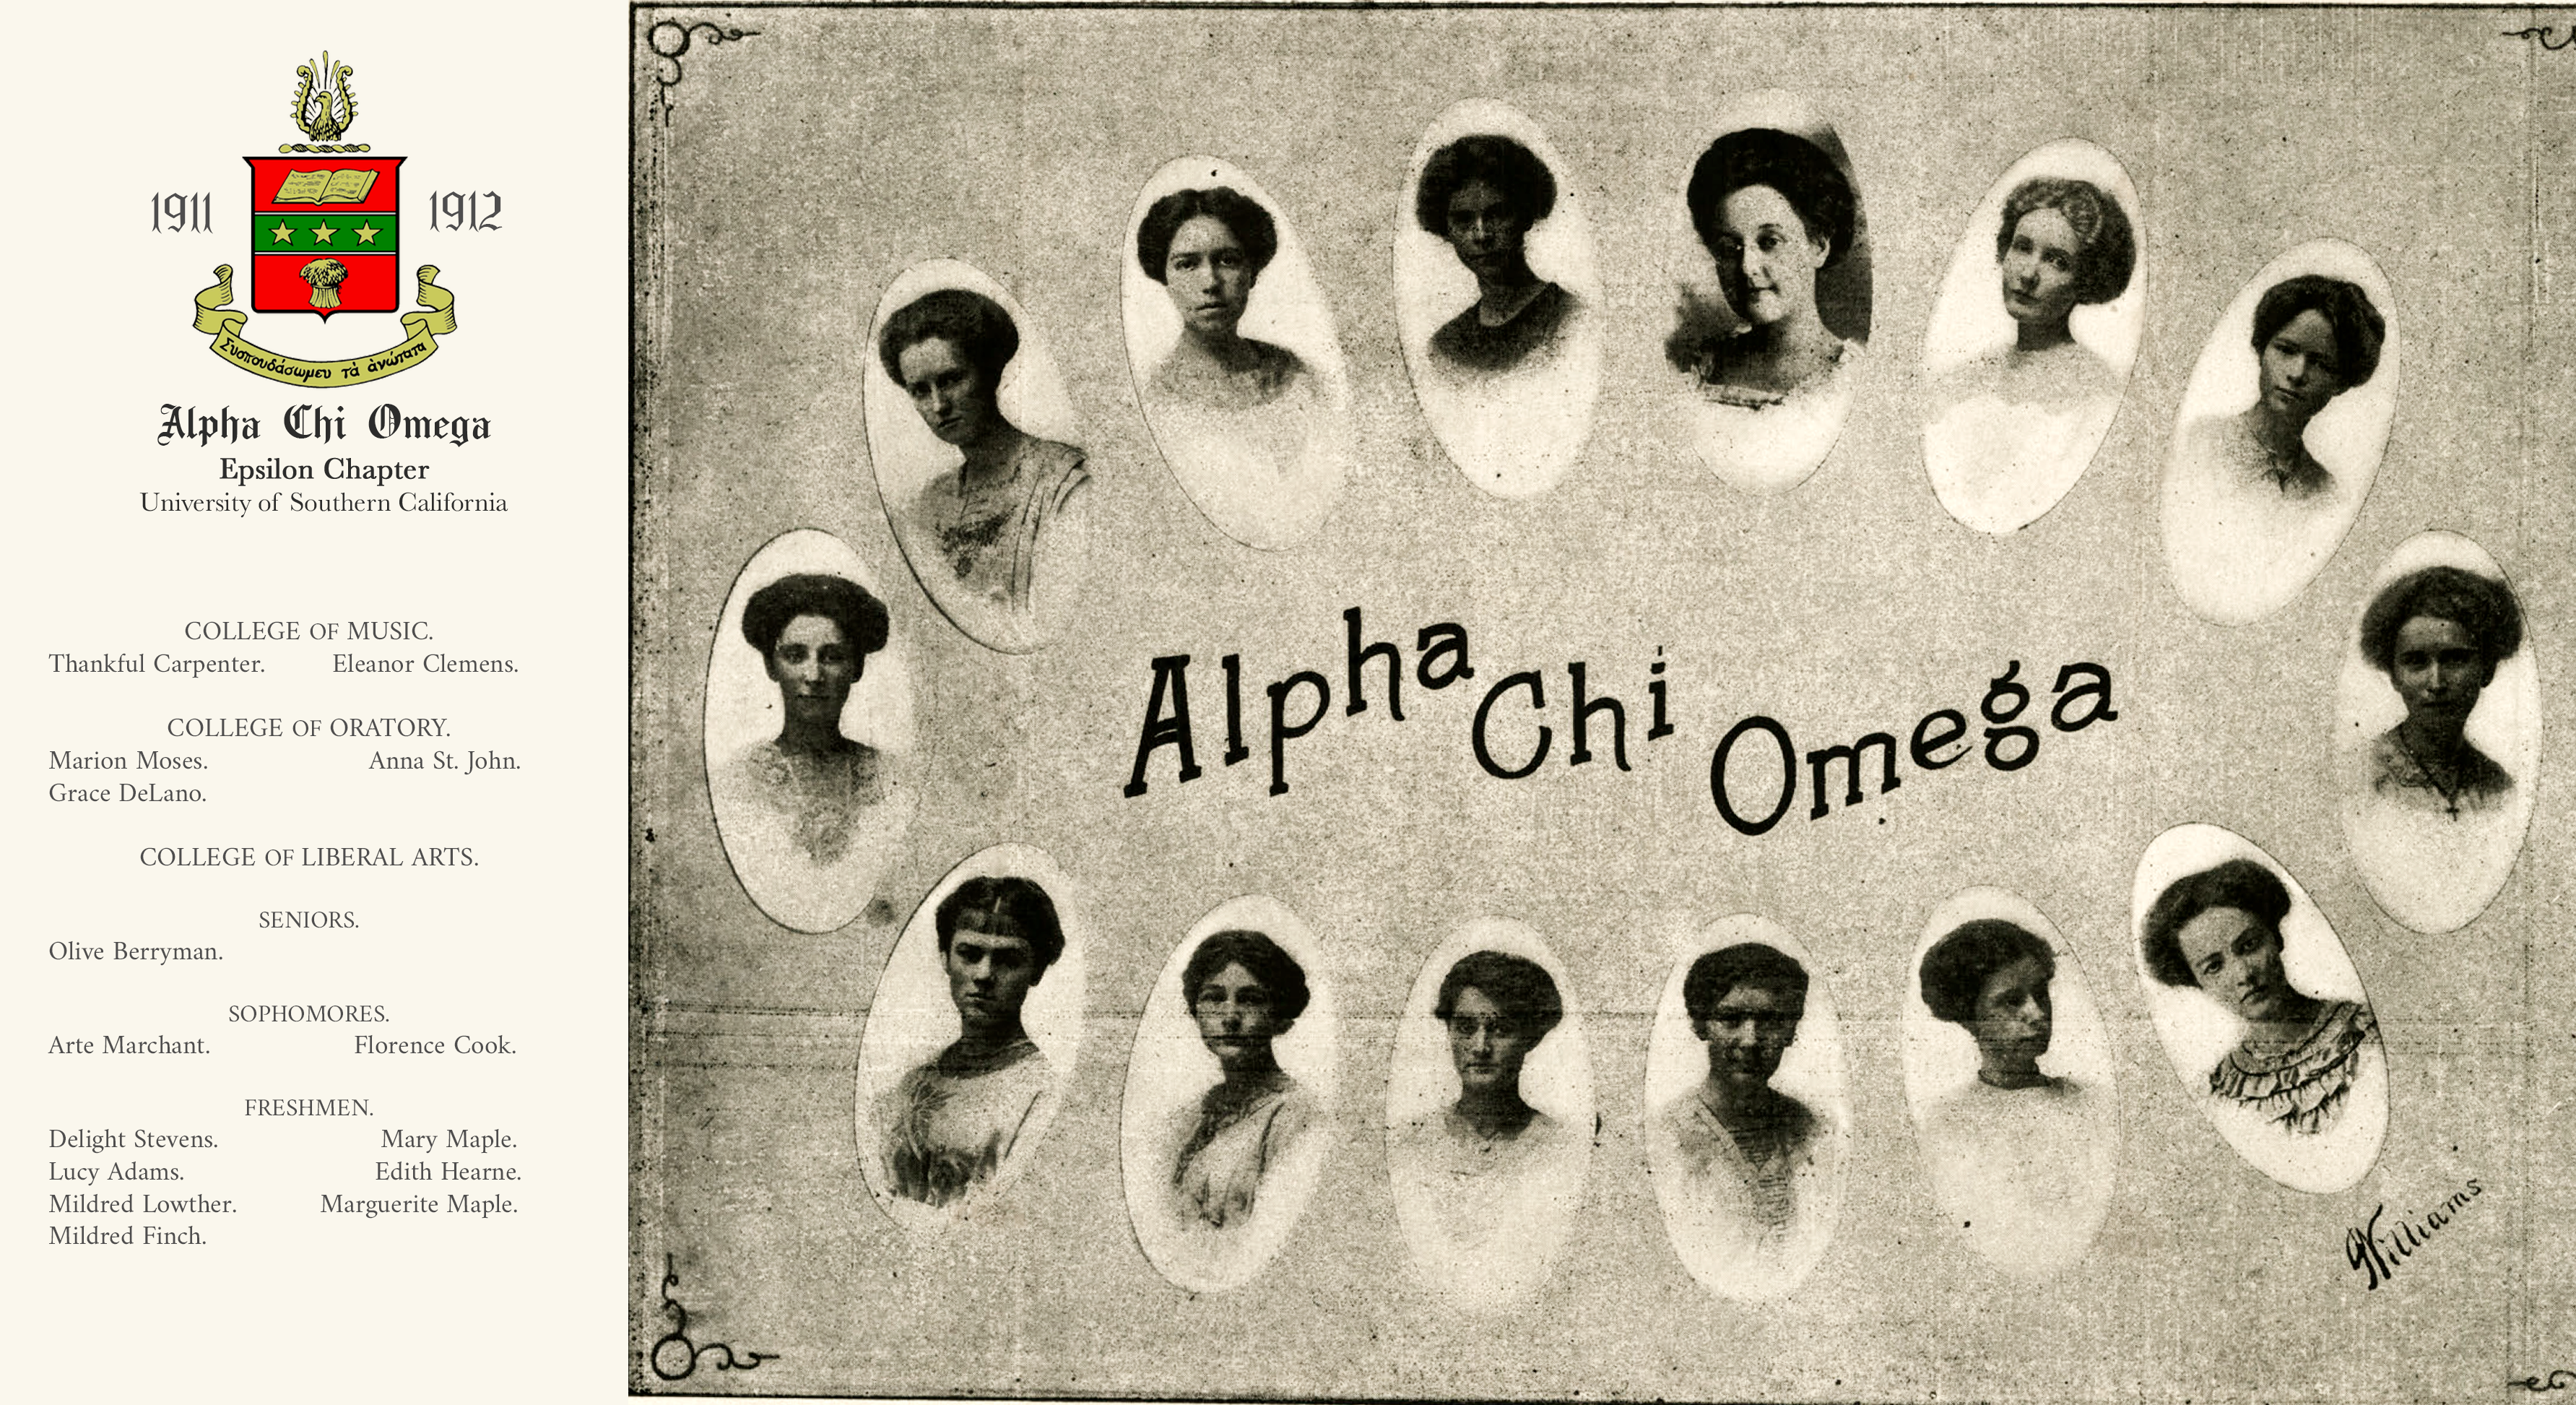 1911 1912
Συσπουδάσωμεν τὰ ἀνώτατα
Alpha Chi Omega
Epsilon Chapter
University of Southern California
COLLEGE OF MUSIC.
Thankful Carpenter. Eleanor Clemens.
COLLEGE OF ORATORY.
Marion Moses. Anna St. John.
Grace DeLano.
COLLEGE OF LIBERAL ARTS.
SENIORS.
Olive Berryman.
SOPHOMORES.
Arte Marchant. Florence Cook.
FRESHMEN.
Delight Stevens. Mary Maple.
Lucy Adams. Edith Hearne.
Mildred Lowther. Marguerite Maple.
Mildred Finch.
Alpha Chi Omega
Williams